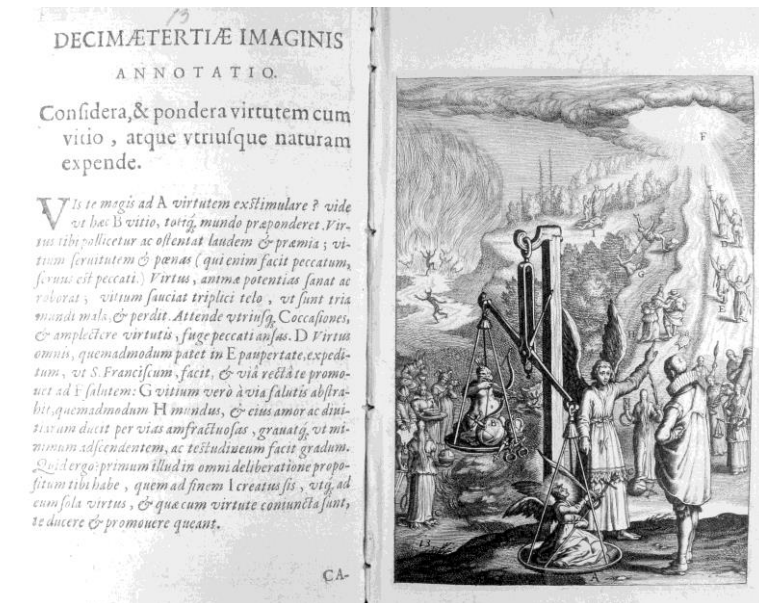 13
DECIMÆTERTIÆ IMAGINIS
ANNOTATIO.
Conſidera,& pondera virtutem cum
vitio , atque vtriuſque naturam
expende.
VIs te magis ad A virtutem exſtimulare ? vide
vt hæc B vitio, totiq; mundo præponderet. Vir-
tus tibi pollicetur ac oſtentat laudem & præmia ; vi-
tium ſeruitutem & pœnas ( qui enim facit peccatum,
ſeruus eſt peccati.) Virtus , animæ potentias ſanat ac
roborat ; vitium ſauciat triplici telo , vt ſunt tria
mundi mala, & perdit. Attende vtriuſq; C occaſiones,
& amplectere virtutis , fuge peccati anſas. D Virtus
omnis , quemadmodum patet in E paupertate, expedi-
tum , vt S. Franciſcum , facit , & viâ rectâ te promo-
uet ad F ſalutem: G vitium verò à via ſalutis abſtra-
hit, quemadmodum H mundus, & eius amor ac diui-
tiarum ducit per vias amfractuoſas , grauatq; vt mi-
nimum adſcendentem, ac teſtudineum facit gradum.
Quid ergo? primum illud in omni deliberatione propo-
ſitum tibi habe , quem ad finem I creatus ſis , vtq; ad
eum ſola virtus , & quæ cum virtute coniuncta ſunt,
te ducere & promouere queant.
CA-
F
I
D
G
E
H
B
13
A